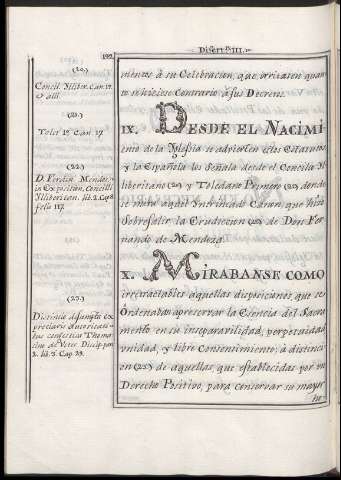 Disert. III.
192
(20.)
Concil. Illiber. Can. 12.
& alii
(21.)
Tolet. 1º. Can. 17.
(22.)
D. Ferdin. Mendoz.
in Concilii
Illiberitan. lib. 2. Cap.
117.
(23.)
Distinctio
preclaris authoritati-
bus Thomas-
ino de Veter. Discip. part.
2. lib. 3. Cap. 23.
mentos à su Celebracion, que irritasen quan-
to se hiciese Contrario à sus Decretos.
IX. DESDE EL NACIMI-
ento de la Yglesia se advierten estos Estatutos
y la Española los Señala desde el Concilio Il-
liberitano (20) y Toledano Primero (21), donde
se mira aquel Intrincado Canon, que hizo
Sobresalir la Erudicion (22) de Don Fer-
nando de Mendoza.
X. MIRABANSE COMO
irretractables aquellas disposiciones que se
Ordenaban apreservar la Esencia del Sacra-
mento en su inseparavilidad, perpetuidad,
vnidad, y libre Consentimiento; à distinci-
on (23) de aquellas, que establecidas por vn
Derecho Positivo, para conservar su mayor